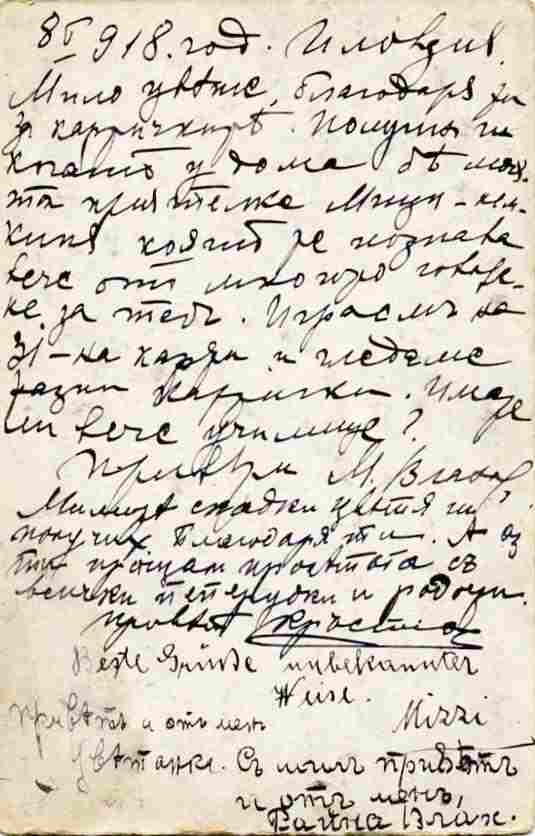 8 918. год. Пловдив.
Мило цвѣте, благодаря ти
за картичкитѣ. Получих ги
когато у дома бѣ моя-
та приятелка Мици - нем-
киня която те познава
вече отъ многото говоре-
не за тебъ. Играемъ на
31 - на карти и гледаме
разни картички. Имате
ли вече училище?
Привѣти М. Влахов
Милите сладки цвѣтя ги
получих. Благодаря ти. А аз
ти пращам простата съ
всички пеперуди и
привѣт
Beste Grüße unbekannter
Weise. Mizzi
привѣтъ и отъ мен
Цвѣтанка. Съ милъ привѣтъ
и отъ менъ,
Райна Влах.